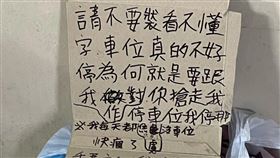 請不要裝看不懂
字車位真的不好
停為何就是要跟
我做對你搶走我
作停車位我停那
我每天都 車位
快瘋了